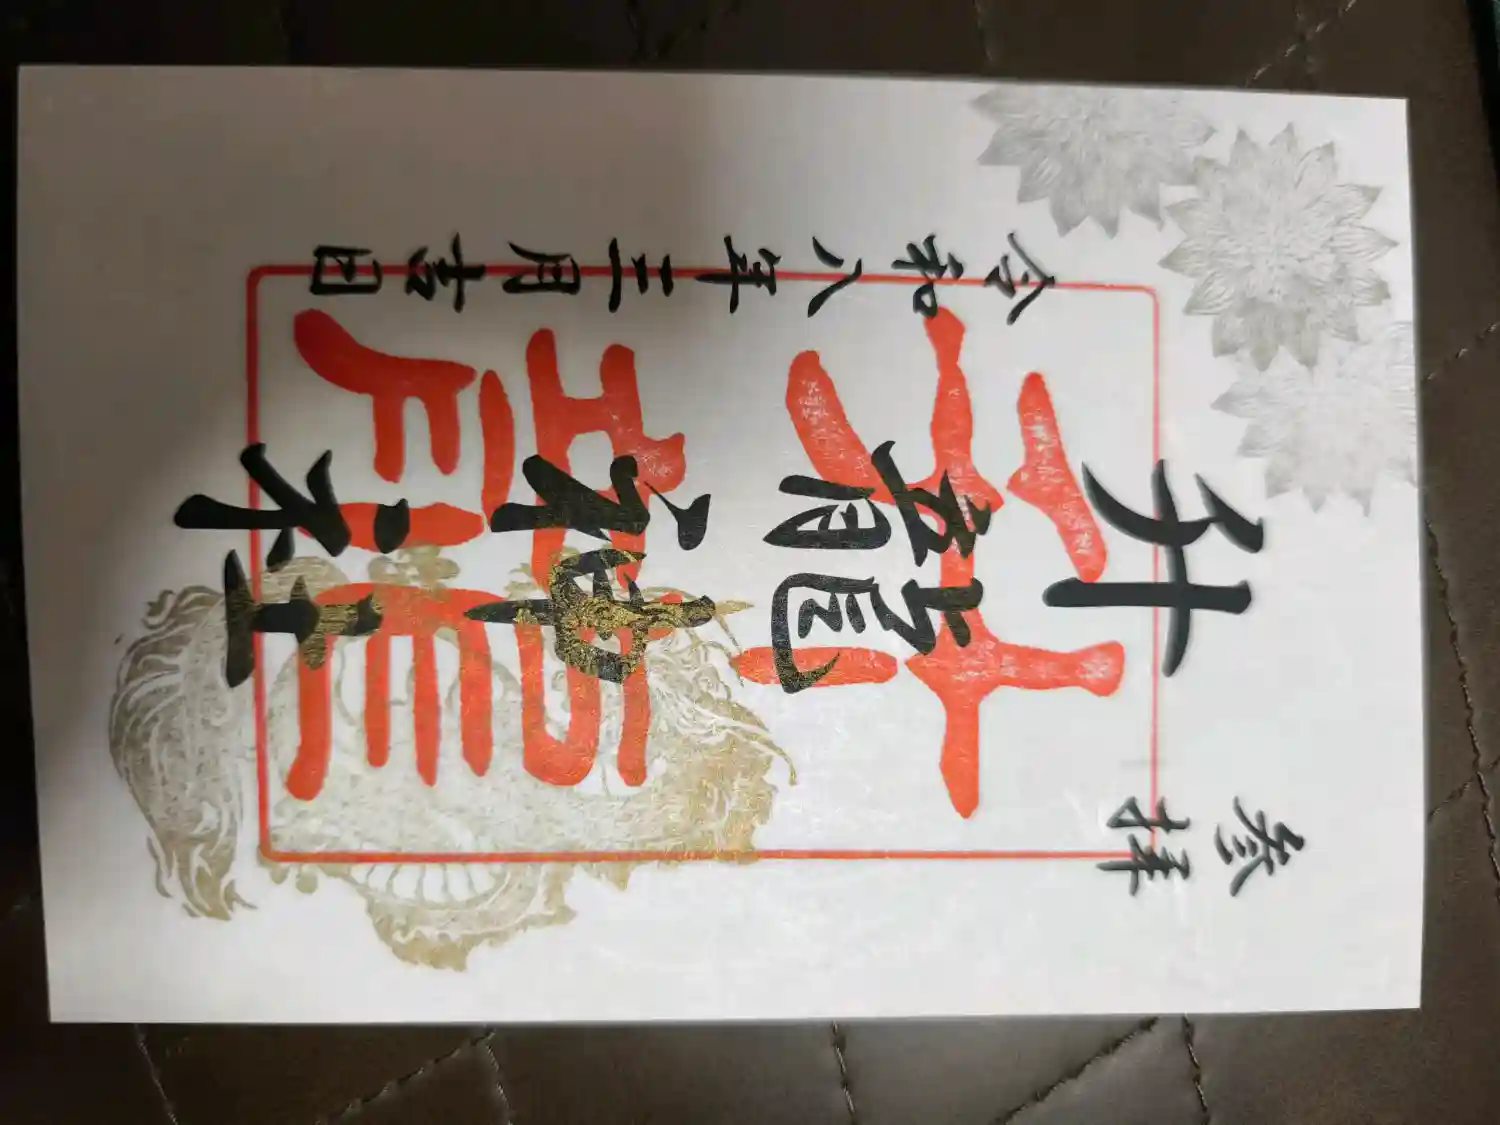 参拝
升龍神社
升龍
令和八年三月吉日